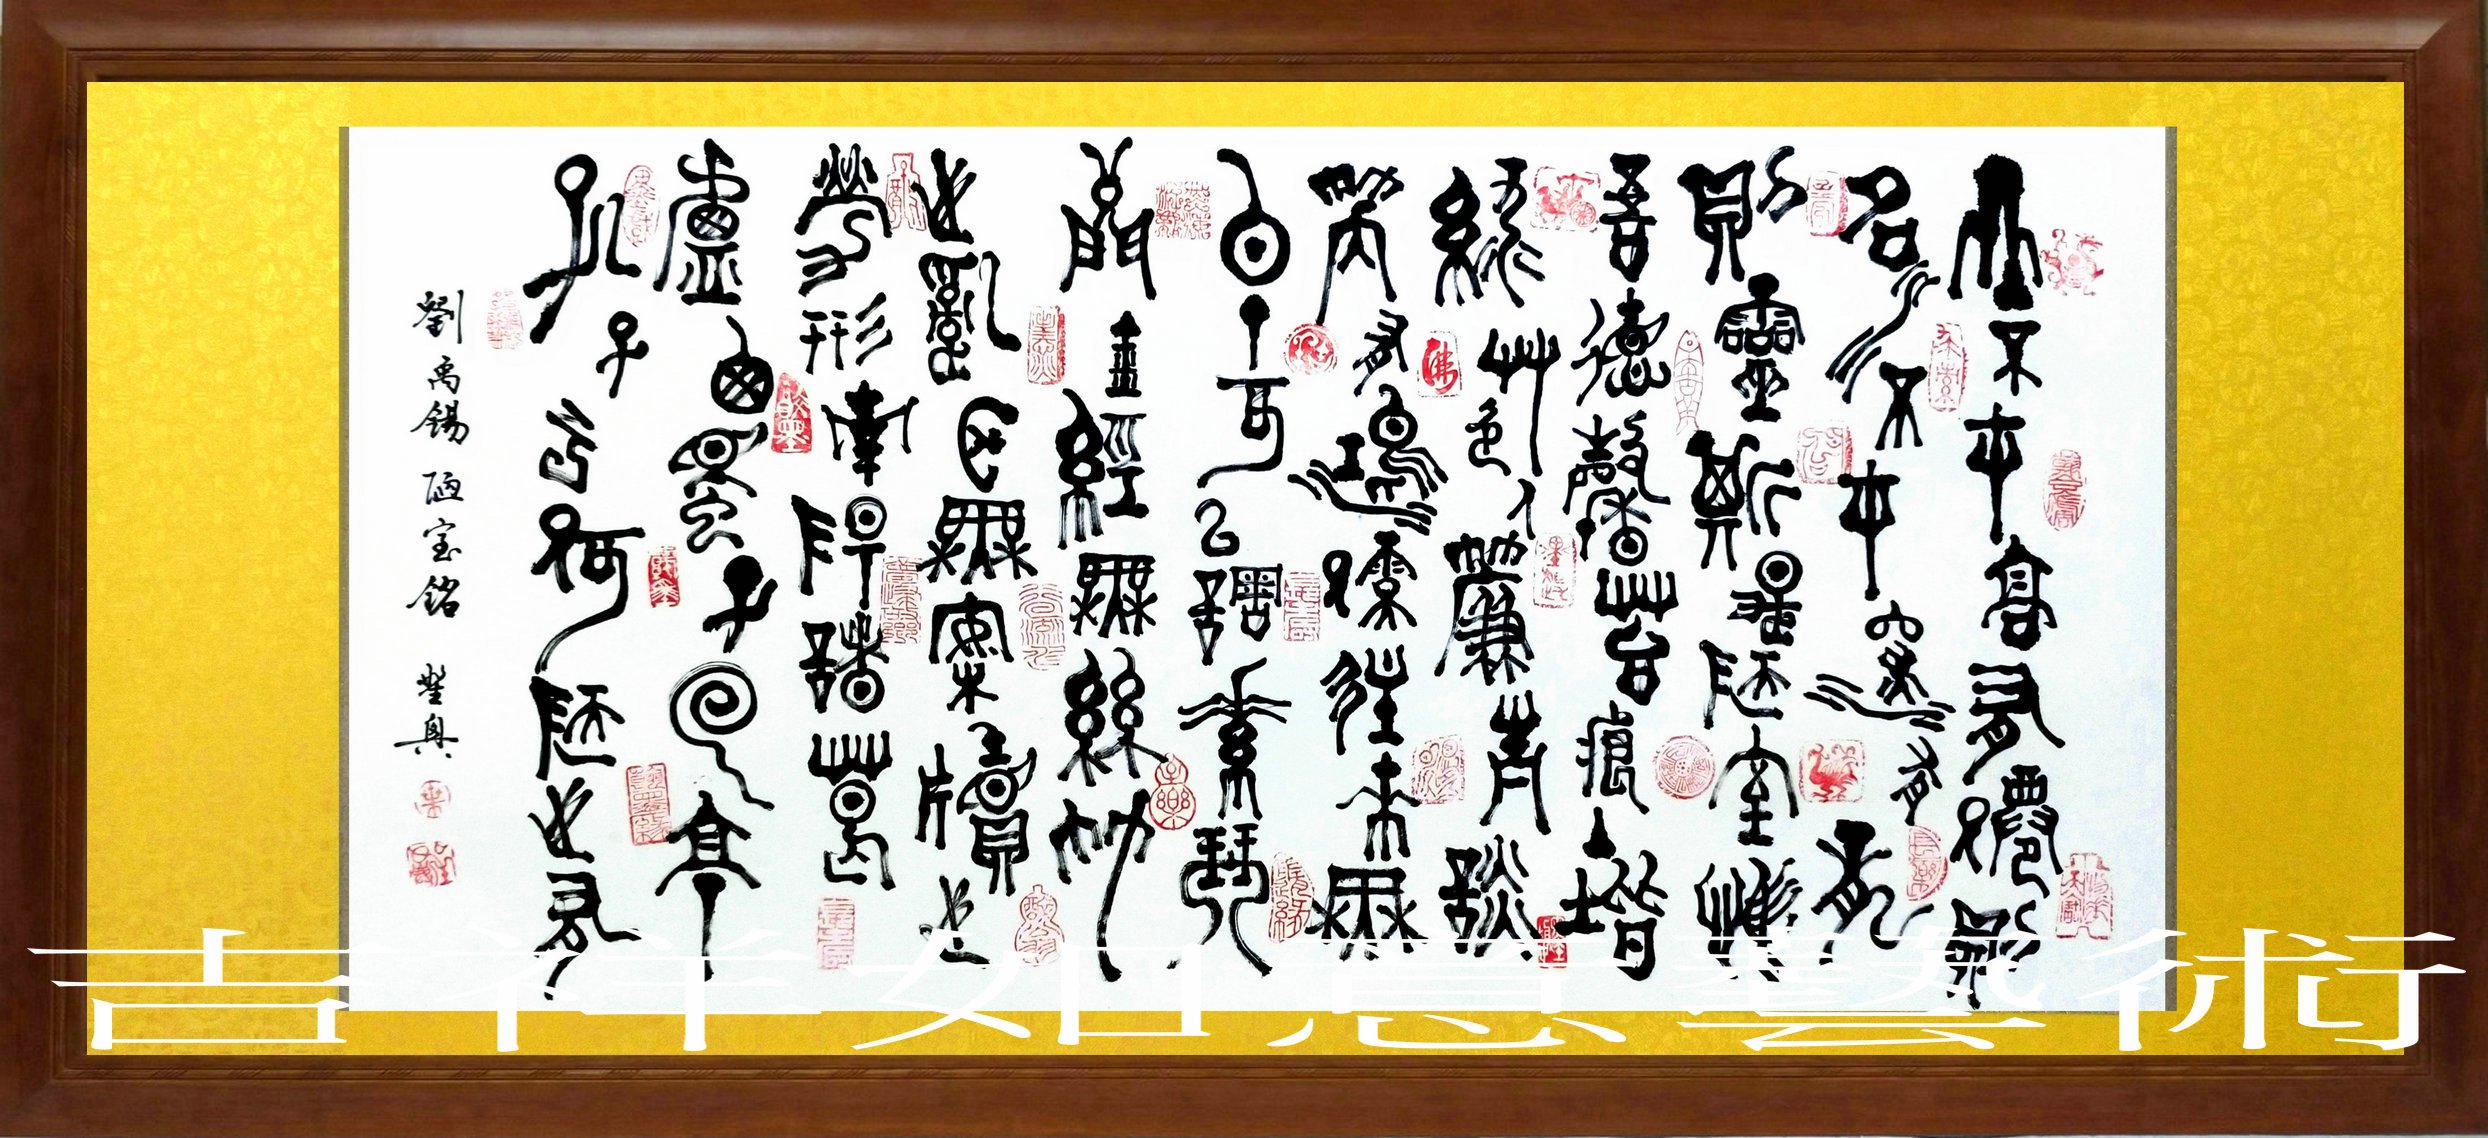 山不在高有僊則
名水不在深有龍
則靈斯是陋室惟
吾德馨苔痕上堦
綠草色入簾青談
笑有鴻儒往來無
白丁可以調素琴
閱金經無絲竹
之亂耳無案牘之
勞形南陽諸葛
廬西蜀子云亭
孔子云何陋之有
劉禹錫 陋室銘
吉祥如意藝術